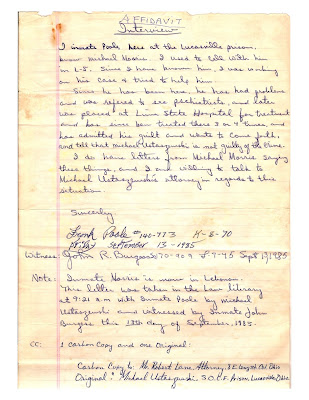 AFFIDAVIT
Interview
I inmate Poole here at the Lucasville prison,
know Michael Norris. I used to cell with him
in L-5. Since I have known him, I was working
on his case & tried to help him.
Since he has been here, he has had problems
and was refered to see psychiatrist, and later
was placed at Lima State Hospital for treatment
and has since been treated there 3 or 4 times, and
has admitted his guilt and wants to come forth,
and tell that Michael Ustaszewski is not guilty of the crime.
I do have letters from Michael Norris saying
these things, and I am willing to talk to
Michael Ustaszewski's attorney in regards to this
situation.
Sincerly
Frank Poole #140-773 K-8-70
Friday September 13-1985
Witness: John R. Burgess 70-909 Sept 13, 1985
Note: Inmate Norris is now in Lebanon.
This letter was taken in the Law library
at 9:21 a.m with Inmate Poole by Michael
Ustaszewski and witnessed by Inmate John
Burgess this 13th day of September, 1985.
CC: 1 Carbon Copy and one Original:
Carbon Copy to Mr. Robert Lane, Attorney, 8 E. Long St. Col. Ohio
Original: Michael Ustaszewski, S.O.C.F. Prison, Lucasville, Ohio